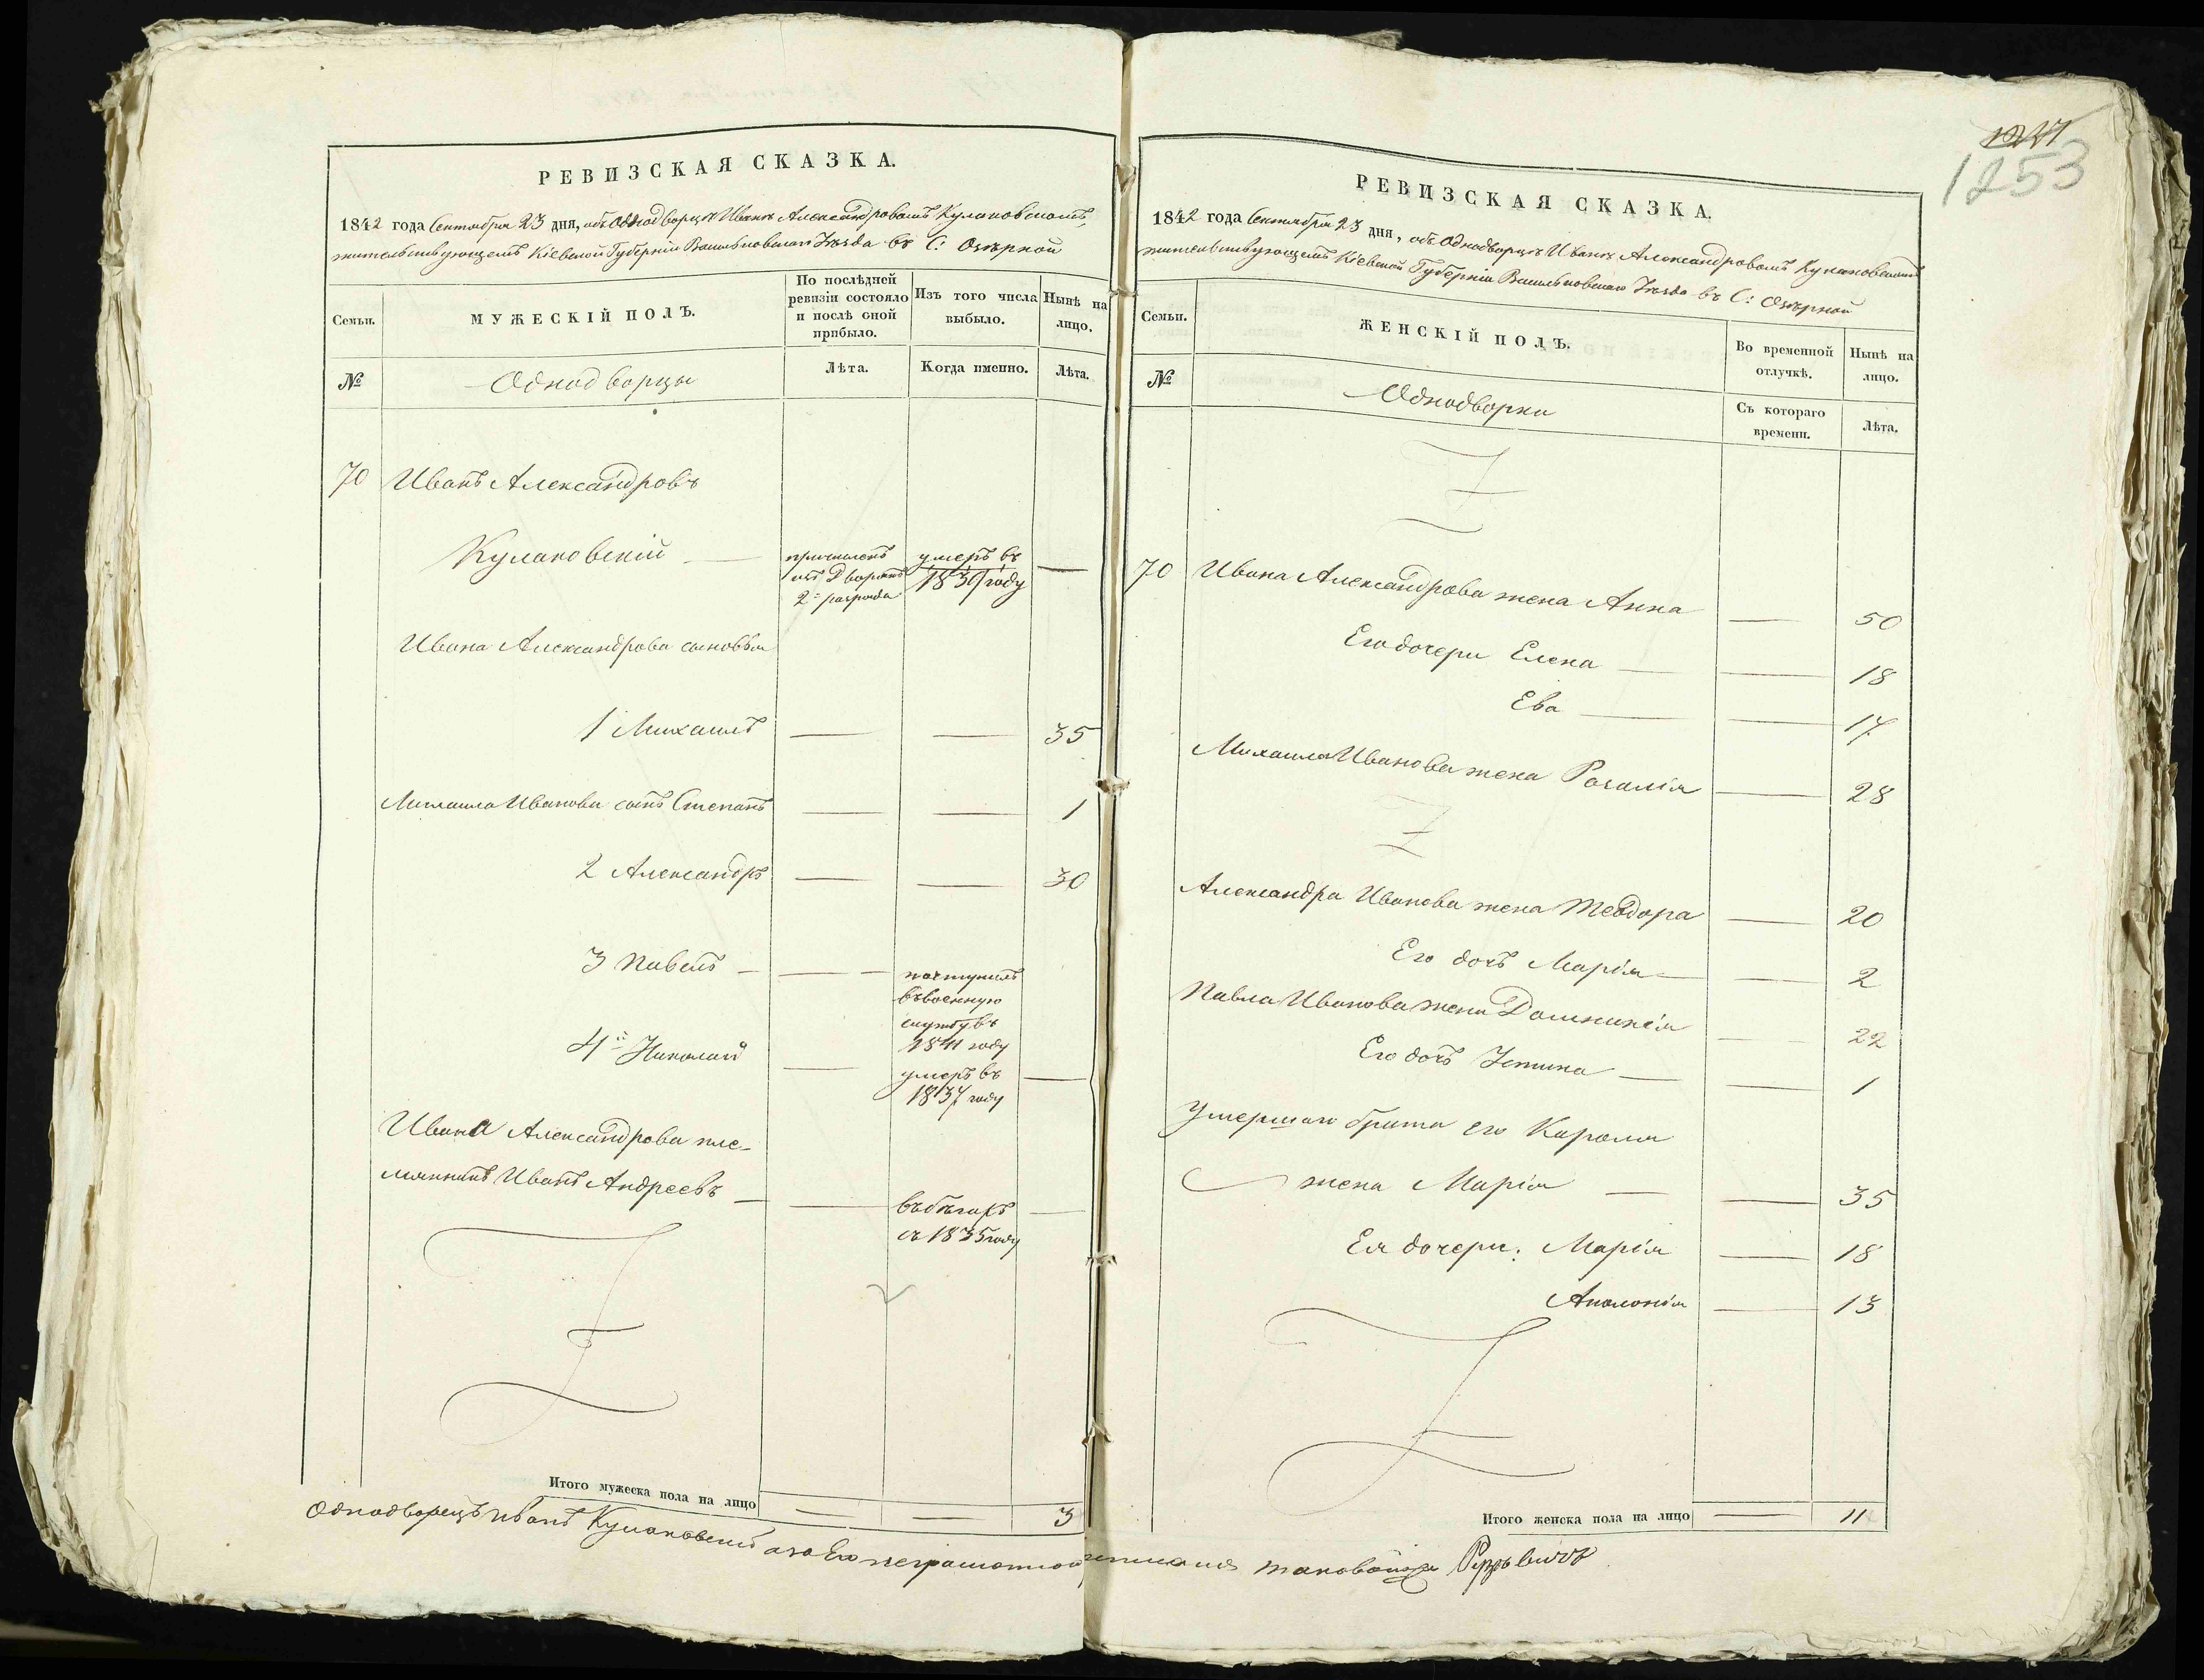 РЕВИЗСКАЯ СКАЗКА.
1842 года Сентября 23 дня, объ Однодворцѣ Иванѣ Александровомъ Кулаковскомъ,
жительствующемъ Кіевской Губерніи Васильковскаго Уѣзда въ С: Озѣрной
Семьи.
МУЖЕСКІЙ ПОЛЪ.
По послѣдней
ревизіи состояло
и послѣ оной
прибыло.
Изъ того числа
выбыло.
Нынѣ на
лицо.
№
Однодворцы
Лѣта.
Когда именно.
Лѣта.
70 Иванъ Александровъ
Кулаковскій — причисленъ умеръ въ —
изъ Дворянъ 1839 году
2го разряда
Ивана Александрова сыновья
1 Михаилъ — — 35
Михаила Иванова сынъ Степанъ — — 1
2 Александръ — — 30
3 Павелъ — — поступилъ
въ военную
службу въ
1841 году
4й Николай — умеръ въ —
1837 году
Ивана Александрова пле-
мянникъ Иванъ Андреевъ — — въ бѣгахъ —
съ 1835 году
Итого мужеска пола на лицо — — 3
1253
РЕВИЗСКАЯ СКАЗКА.
1842 года Сентября 23 дня, объ Однодворцѣ Иванѣ Александровомъ Кулаковскомъ
жительствующемъ Кіевской Губерніи Васильковскаго Уѣзда въ С: Озѣрной
Семьи.
ЖЕНСКІЙ ПОЛЪ.
Во временной
отлучкѣ.
Нынѣ на
лицо.
№
Однодворки
Съ котораго
времени.
Лѣта.
70 Ивана Александрова жена Анна — 50
Его дочери Елена — — 18
Ева — — 17
Михаила Иванова жена Розалія — 28
Александра Иванова жена Теодора — 20
Его дочь Марія — — 2
Павла Иванова жена Домникія — 22
Его дочь Устина — — 1
Умершаго брата его Кароля
жена Марія — — 35
Ея дочери: Марія — 18
Аполонія — 13
Итого женска пола на лицо — 11
Однодворецъ Иванъ Кулаковскій а за Его неграмотного